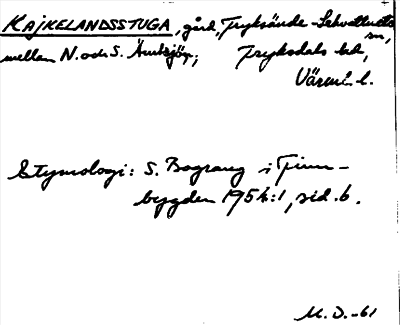 KAJKELANDSSTUGA, gård, Fryksände - Lekvattnets
sn,
mellan N. och S. Ämtsjön; Fryksdals hd,
Värml. l.
Etymologi: S. Bograng i Finn-
bygden 1954:1, sid. 6.
M. D. -61